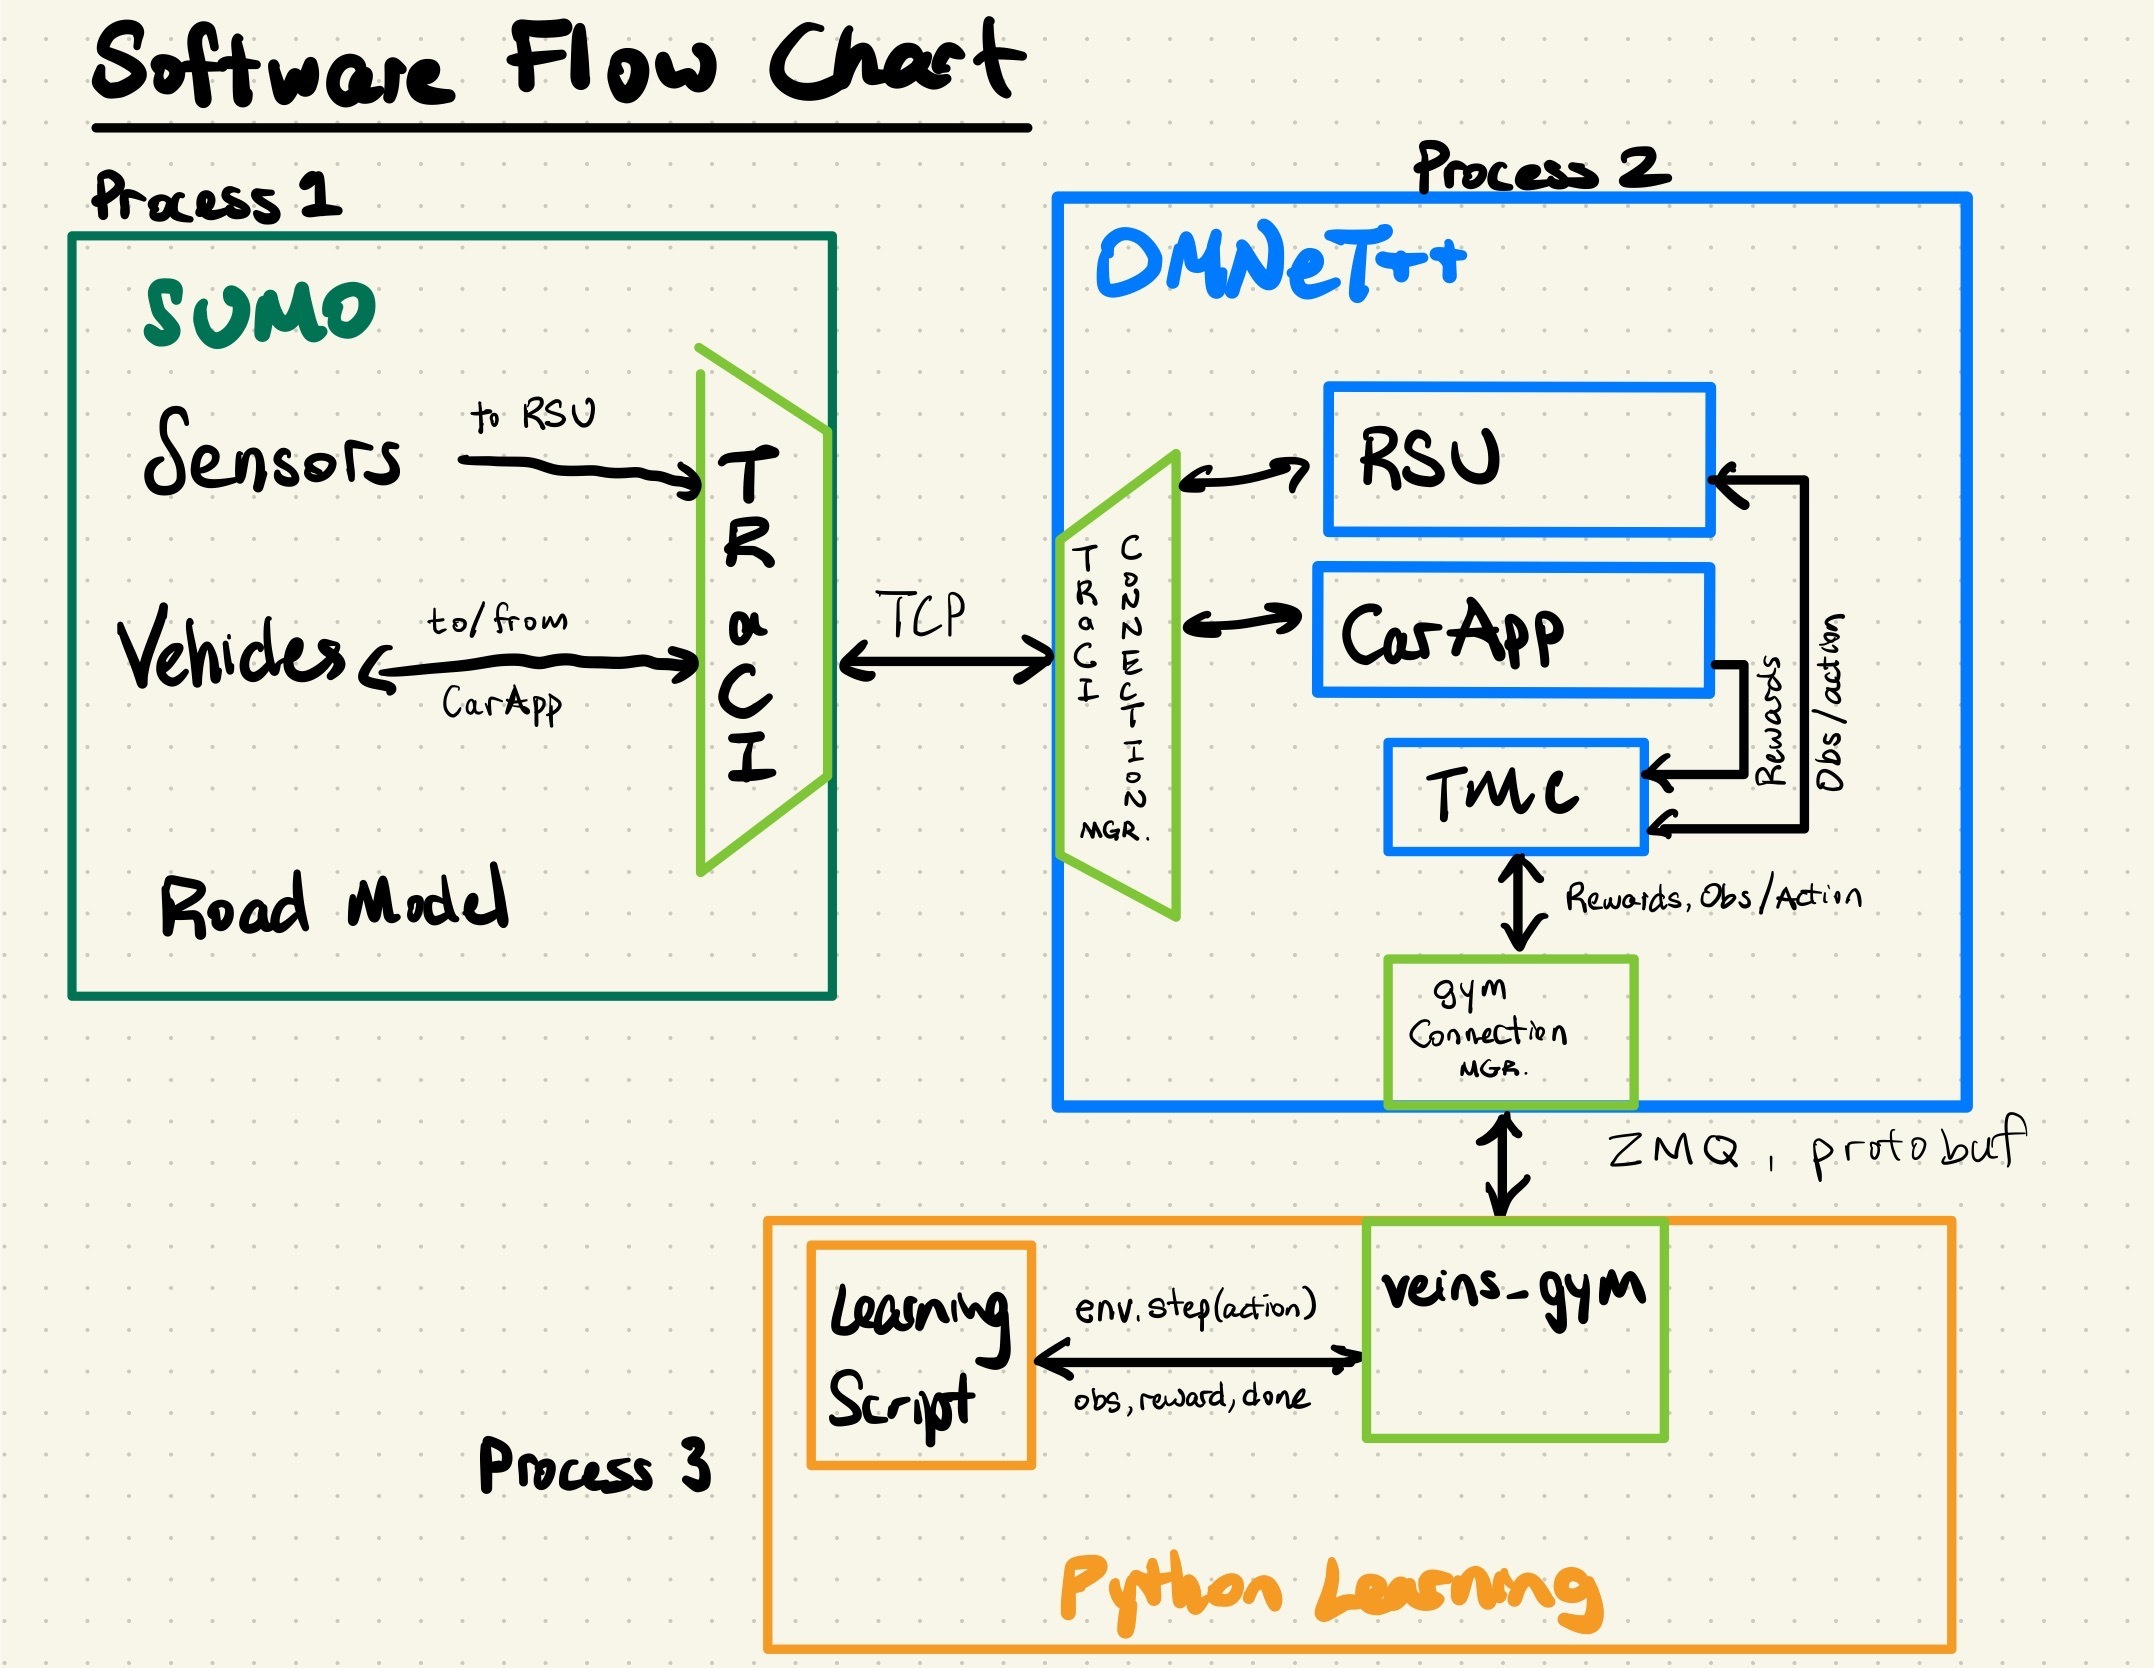 Software Flow Chart
Process 1
SUMO
Sensors
to RSU
Vehicles
to/from
CarApp
Road Model
TRaCI
TCP
Process 2
OMNeT++
TRaCI
CONNECTION
MGR.
RSU
CarApp
TMC
Rewards
Obs/action
Rewards, Obs/Action
gym
Connection
MGR.
ZMQ, protobuf
Process 3
Learning
Script
env.step(action)
obs, reward, done
veins_gym
Python Learning